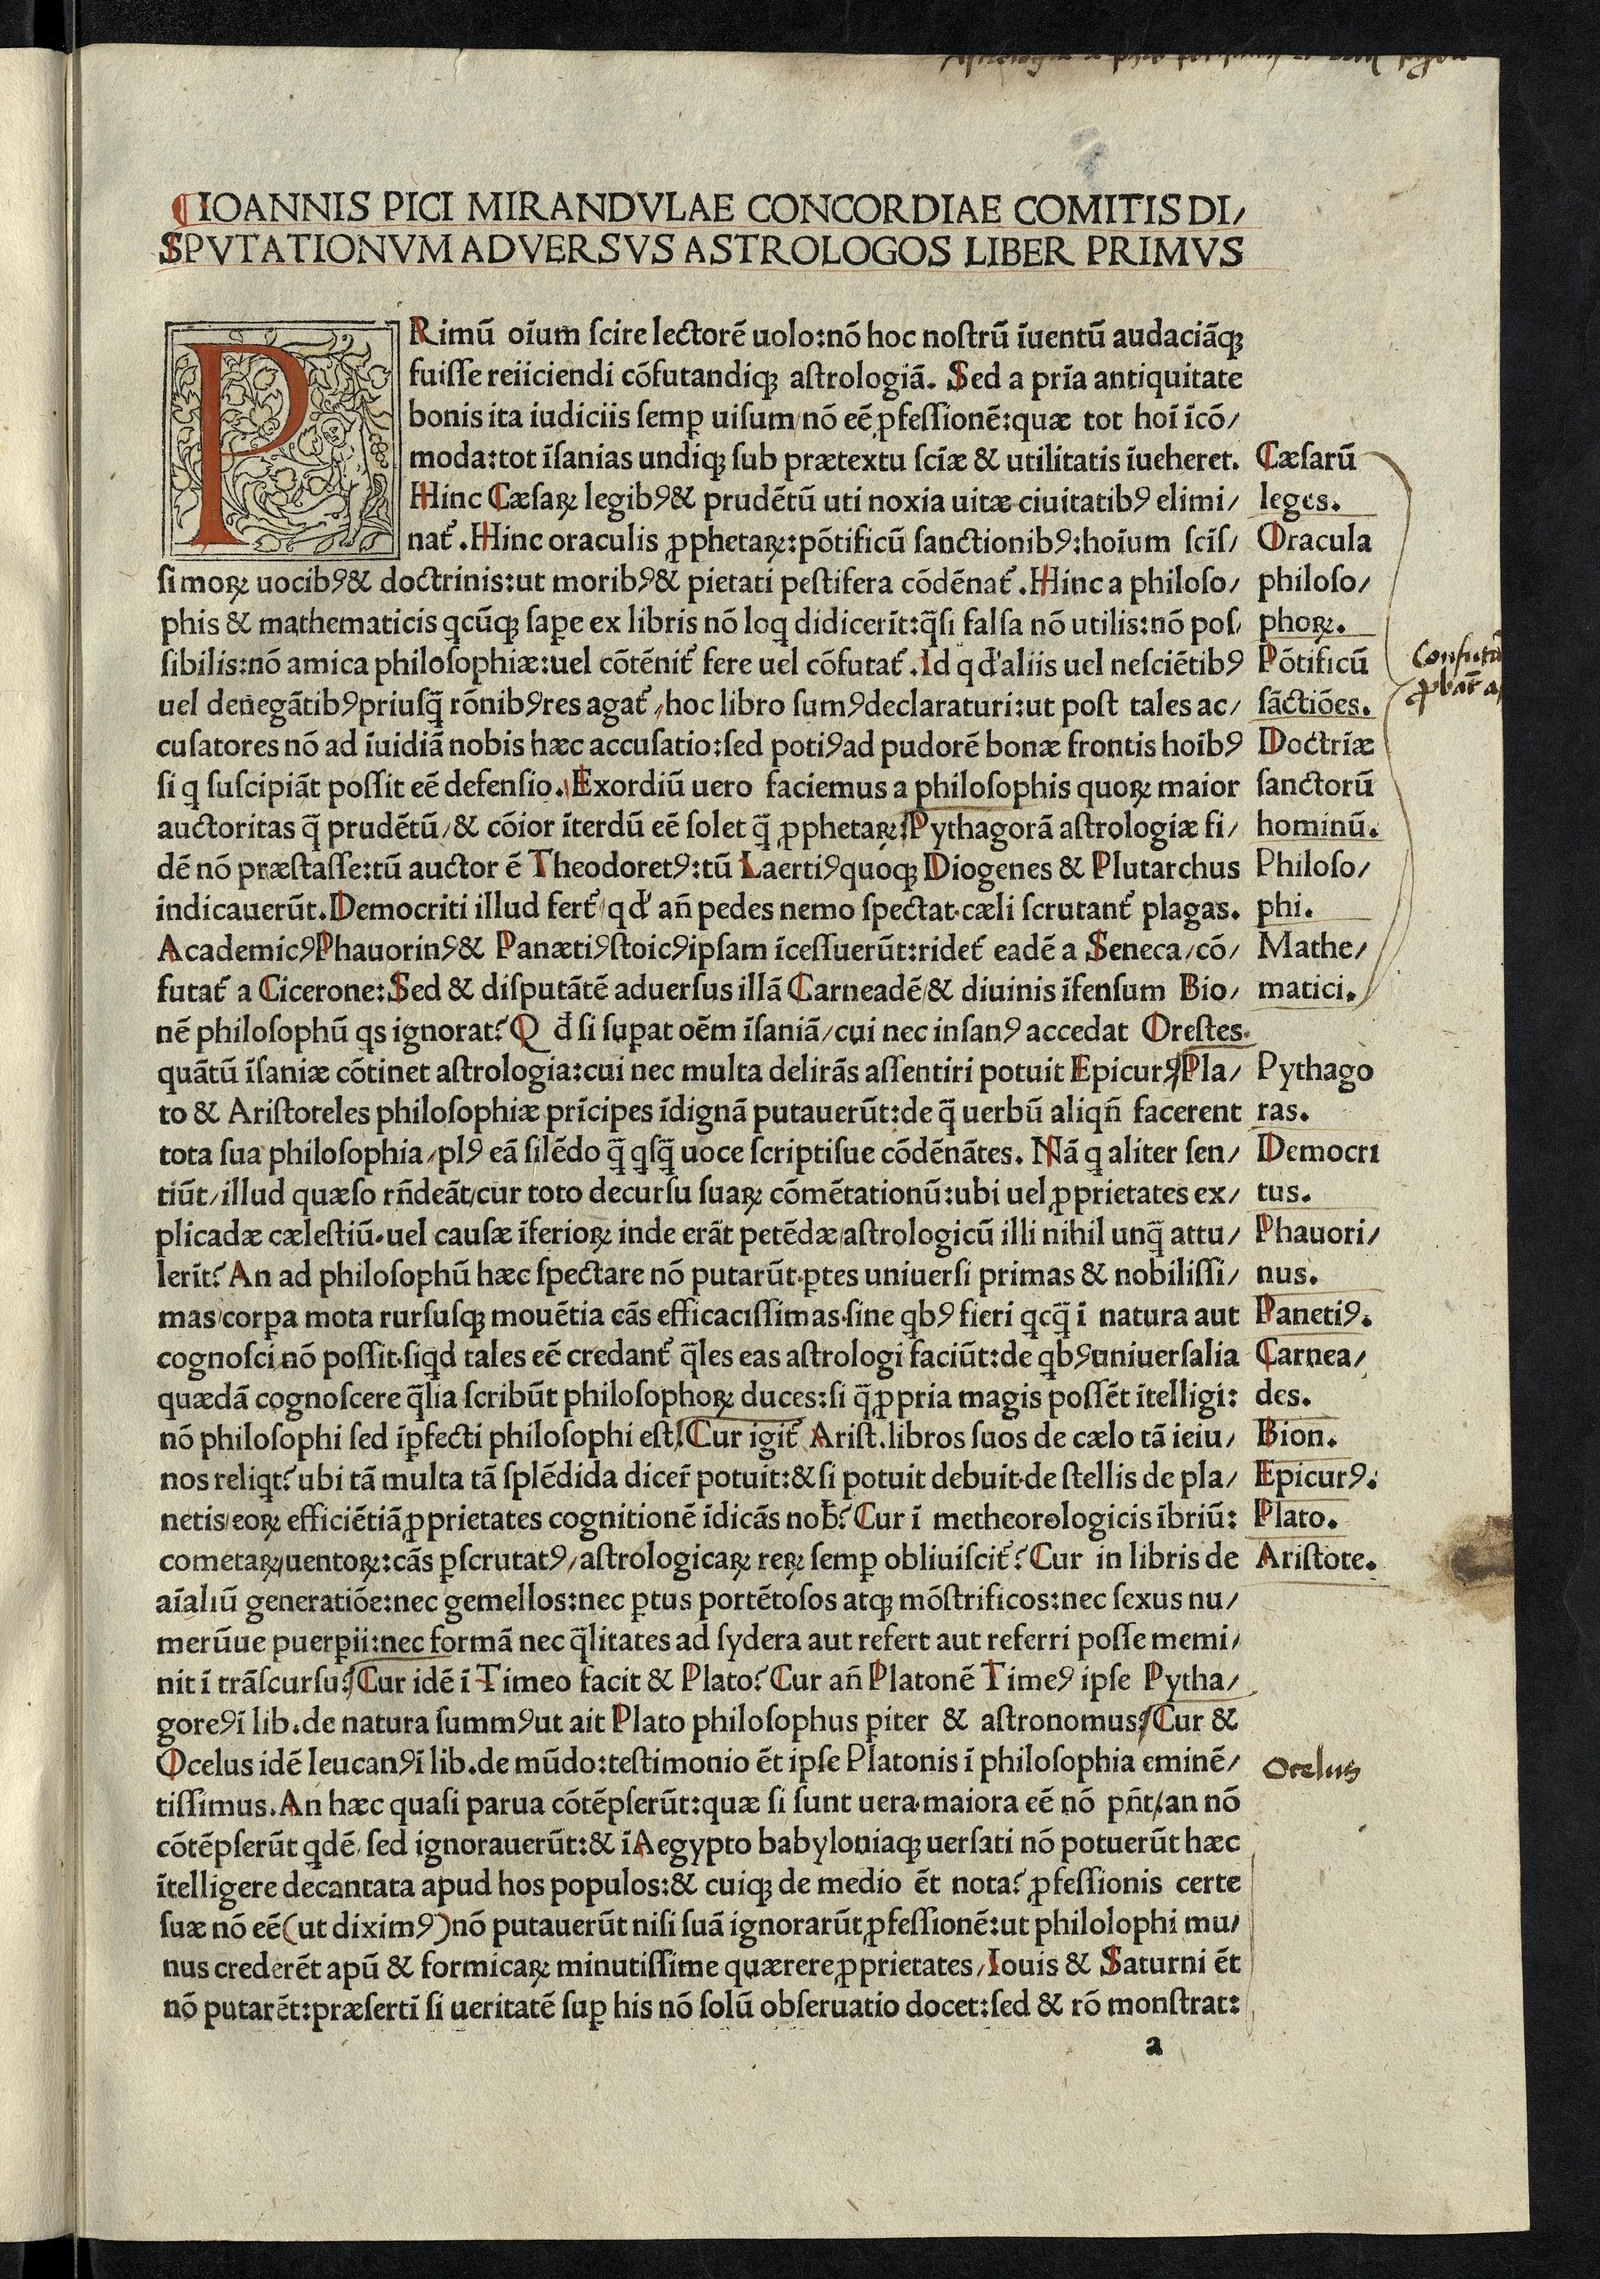 ¶IOANNIS PICI MIRANDVLAE CONCORDIAE COMITIS DI/
SPVTATIONVM ADVERSVS ASTROLOGOS LIBER PRIMVS
PRimū oīum ſcire lectorē uolo:nō hoc noſtrū īuentū audaciāqꝫ
fuiſſe reiiciendi cōfutandiqꝫ aſtrologiā. Sed a prīa antiquitate
bonis ita iudiciis ſemꝑ uiſum/nō eē ꝓfeſſionē:quæ tot hoī īcō/
moda:tot īſanias undiqꝫ ſub prætextu ſcīæ & utilitatis īueheret.
Hinc Cæſaꝝ legibꝰ& prudētū uti noxia uitæ ciuitatibꝰ elimi/
nat᷑. Hinc oraculis ꝓphetaꝝ:pōtificū ſanctionibꝰ:hoīum ſcīſ/
ſimoꝝ uocibꝰ& doctrinis:ut moribꝰ& pietati peſtifera cōdēnat᷑. Hinc a philoſo/
phis & mathematicis qcūqꝫ ſaꝑe ex libris nō loq̄ didicerīt:q̄ſi falſa nō utilis:nō poſ/
ſibilis:nō amica philoſophiæ:uel cōtēnit᷑ fere uel cōfutat᷑. Id qđ aliis uel neſciētibꝰ
uel denegātibꝰpriuſq̄ rōnibꝰres agat᷑/hoc libro ſumꝰdeclaraturi:ut poſt tales ac/
cuſatores nō ad īuidiā nobis hæc accuſatio:ſed potiꝰad pudorē bonæ frontis hoībꝰ
ſi q ſuſcipiāt poſſit eē defenſio. Exordiū uero faciemus a philoſophis quoꝝ maior
auctoritas q̄ prudētū/& cōior īterdū eē ſolet q̄ ꝓphetaꝝ. Pythagorā aſtrologiæ fi/
dē nō præſtaſſe:tū auctor ē Theodoretꝰ:tū Laertiꝰquoqꝫ Diogenes & Plutarchus
indicauerūt. Democriti illud fert᷑/qđ an̄ pedes nemo ſpectat.cæli ſcrutant᷑ plagas.
Academicꝰ Phauorinꝰ& Panætiꝰſtoicꝰipſam īceſſuerūt:ridet᷑ eadē a Seneca/cō/
futat᷑ a Cicerone:Sed & diſputātē aduerſus illā Carneadē/& diuinis īfenſum Bio/
nē philoſophū qs ignorat? Q đ ſi ſuꝑat oēm īſaniā/cui nec inſanꝰ accedat Oreſtes.
quātū īſaniæ cōtinet aſtrologia:cui nec multa delirās aſſentiri potuit Epicurꝰ/Pla/
to & Ariſtoteles philoſophiæ prīcipes īdignā putauerūt:de q̄ uerbū aliqn̄ facerent
tota ſua philoſophia/plꝰ eā ſilēdo q̄ qſq̄ uoce ſcriptiſue cōdēnātes. Nā q aliter ſen/
tiūt/illud quæſo rn̄deāt/cur toto decurſu ſuaꝝ cōmētationū:ubi uel ꝓprietates ex/
plicadæ cæleſtiū.uel cauſæ īferioꝝ inde erāt petēdæ/aſtrologicū illi nihil unq̄ attu/
lerīt? An ad philoſophū hæc ſpectare nō putarūt.ꝑtes uniuerſi primas & nobiliſſi/
mas/corꝑa mota rurſuſqꝫ mouētia cās efficaciſſimas.ſine qbꝰ fieri qcq̄ ī natura aut
cognoſci nō poſſit.ſiqd tales eē credant᷑ q̄les eas aſtrologi faciūt:de qbꝰuniuerſalia
quædā cognoſcere q̄lia ſcribūt philoſophoꝝ duces:ſi q̄ ꝓpria magis poſſēt ītelligi:
nō philoſophi ſed īꝑfecti philoſophi eſt. Cur igit᷑ Ariſt. libros ſuos de cælo tā ieiu/
nos reliqt? ubi tā multa tā ſplēdida dicer̄ potuit:& ſi potuit debuit.de ſtellis de pla/
netis/eoꝝ efficiētiā ꝓprietates cognitionē īdicās nob̄? Cur ī metheorologicis ībriū:
cometaꝝ/uentoꝝ:cās ꝑſcrutatꝰ/aſtrologicaꝝ reꝝ ſemꝑ obliuiſcit᷑? Cur in libris de
aīaliū generatiōe:nec gemellos:nec ꝑtus portētoſos atqꝫ mōſtrificos:nec ſexus nu/
merūue puerꝑii:nec formā nec q̄litates ad ſydera aut refert aut referri poſſe memi/
nit ī trāſcurſu? Cur idē ī Timeo facit & Plato? Cur an̄ Platonē Timeꝰ ipſe Pytha/
goreꝰī lib. de natura ſummꝰut ait Plato philoſophus ꝑiter & aſtronomus? Cur &
Ocelus idē leucanꝰī lib. de mūdo:teſtimonio ēt ipſe Platonis ī philoſophia eminē/
tiſſimus. An hæc quaſi parua cōtēpſerūt:quæ ſi ſunt uera.maiora eē nō pn̄t/an nō
cōtēpſerūt qdē. ſed ignorauerūt:& ī Aegypto babyloniaqꝫ uerſati nō potuerūt hæc
ītelligere decantata apud hos populos:& cuiqꝫ de medio ēt nota? ꝓfeſſionis certe
ſuæ nō eē(ut diximꝰ)nō putauerūt niſi ſuā ignorarūt ꝓfeſſionē:ut philoſophi mu/
nus crederēt apū & formicaꝝ minutiſſime quærere ꝓprietates/Iouis & Saturni ēt
nō putarēt:præſertī ſi ueritatē ſuꝑ his nō ſolū obſeruatio docet:ſed & rō monſtrat:
a
Cæſarū
leges.
Oracula
philoſo/
phoꝝ.
Pōtificū
ſāctiōes.
Doctrīæ
ſanctorū
hominū.
Philoſo/
phi.
Mathe/
matici.
Pythago
ras.
Democri
tus.
Phauori/
nus.
Panetiꝰ.
Carnea/
des.
Bion.
Epicurꝰ.
Plato.
Ariſtote.
Ocelus